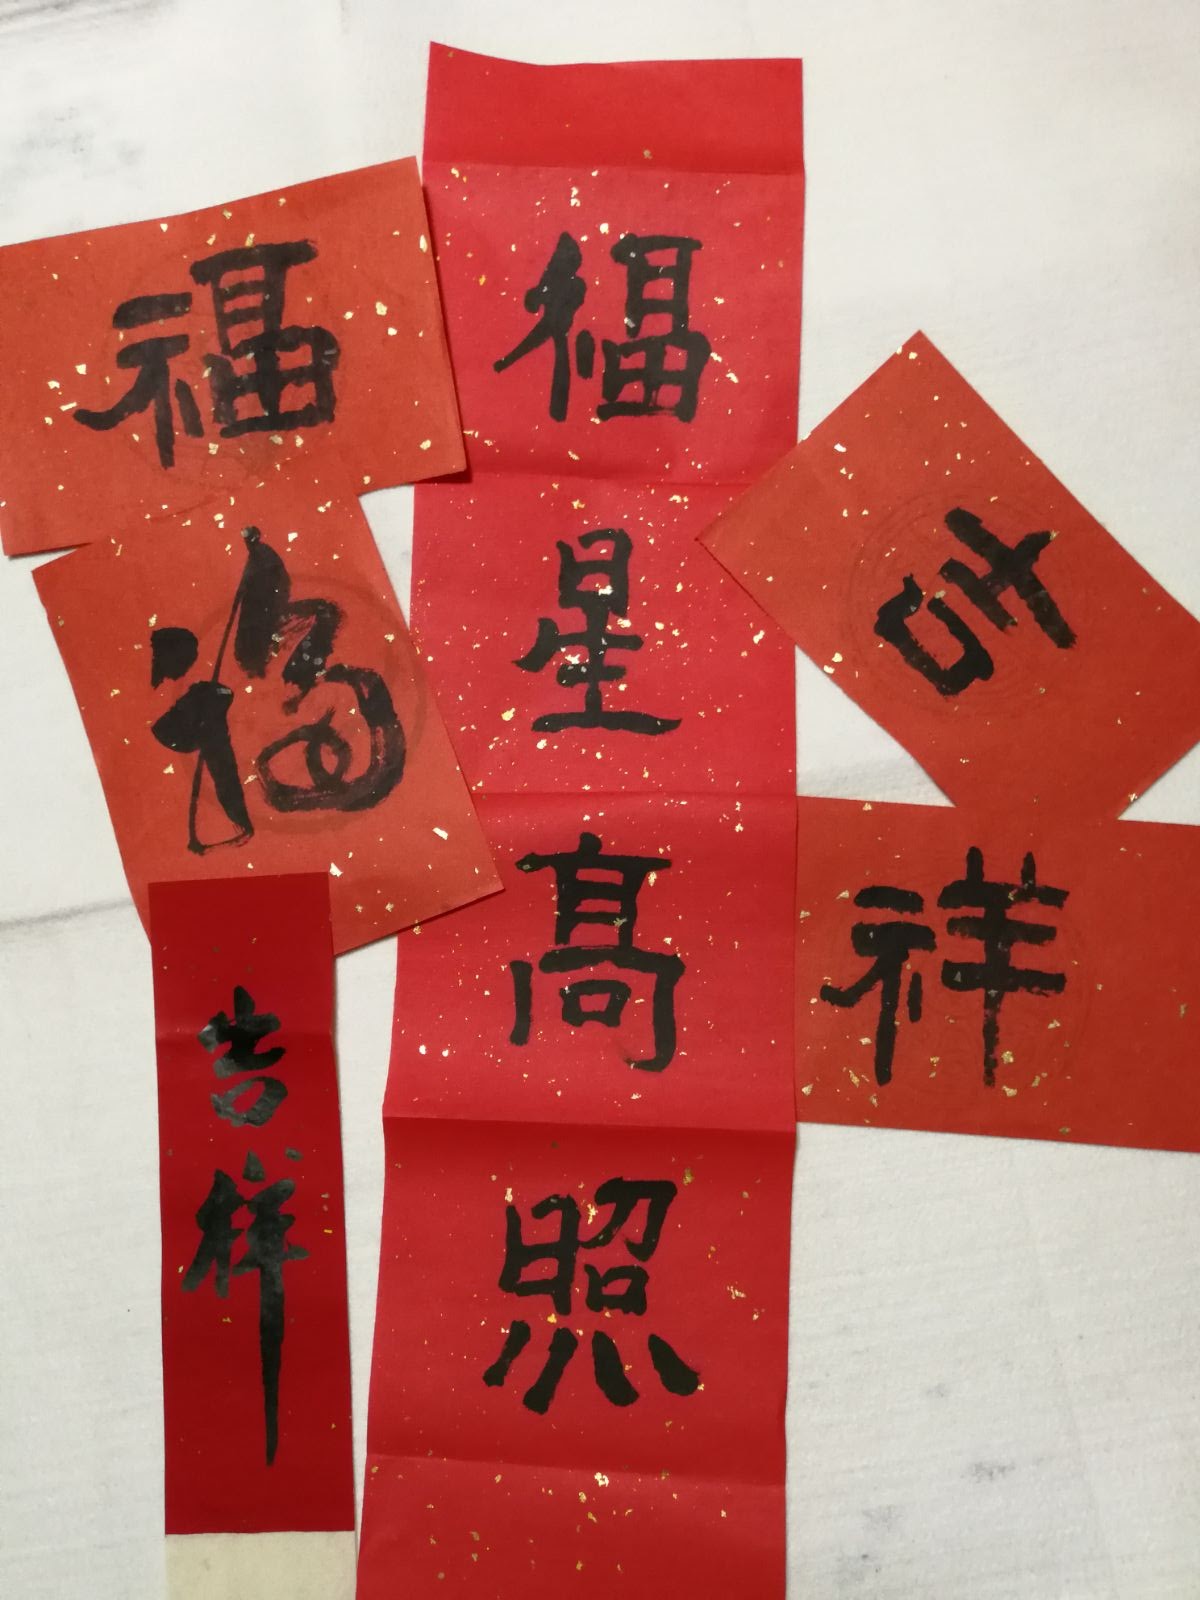 福
福
吉祥
福星高照
吉
祥